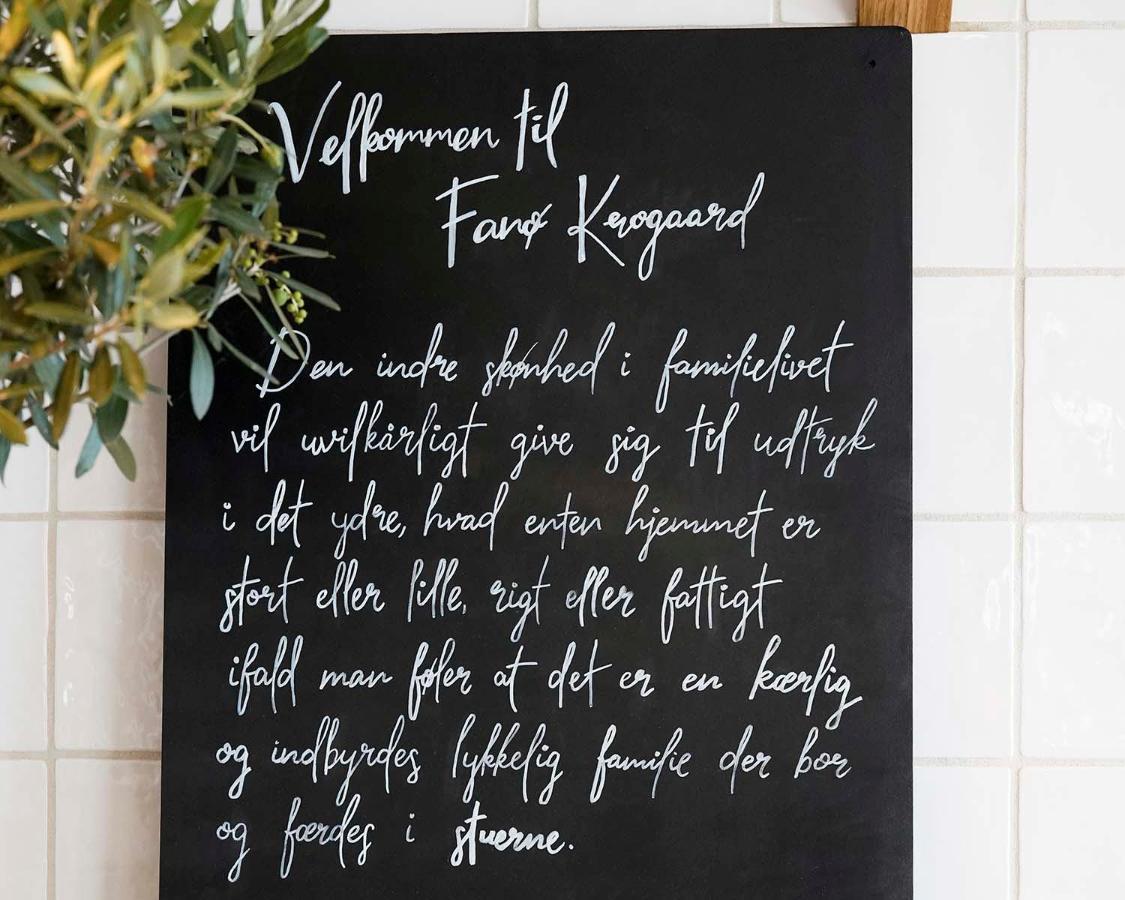 Velkommen til
Fanø Krogaard
Den indre skønhed i familielivet
vil uvilkårligt give sig til udtryk
i det ydre, hvad enten hjemmet er
stort eller lille, rigt eller fattigt
ifald man føler at det er en kærlig
og indbyrdes lykkelig familie der bor
og færdes i stuerne.